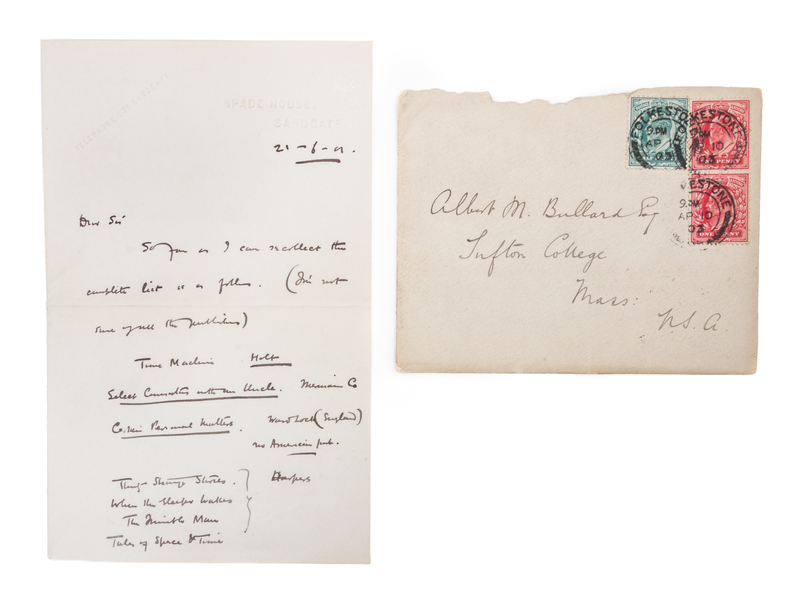 SPADE HOUSE,
SANDGATE.
21-6-01.
Dear Sir
So far as I can recollect the
complete list is as follows. (I'm not
sure of all the publishers)
Time Machine Holt
Select Conversations with an Uncle. Merriam Co
Certain Personal Matters. Ward Lock (England)
no American pub.
Thirty Strange Stories. Harpers
When the Sleeper Wakes
The Invisible Man
Tales of Space & Time
Albert M. Bullard Esq
Tufton College
Mass:
U.S.A.
FOLKESTONE
9 PM
AP 10
03
FOLKESTONE
9 PM
AP 10
03
ONE PENNY
FOLKESTONE
9 PM
AP 10
03
ONE PENNY